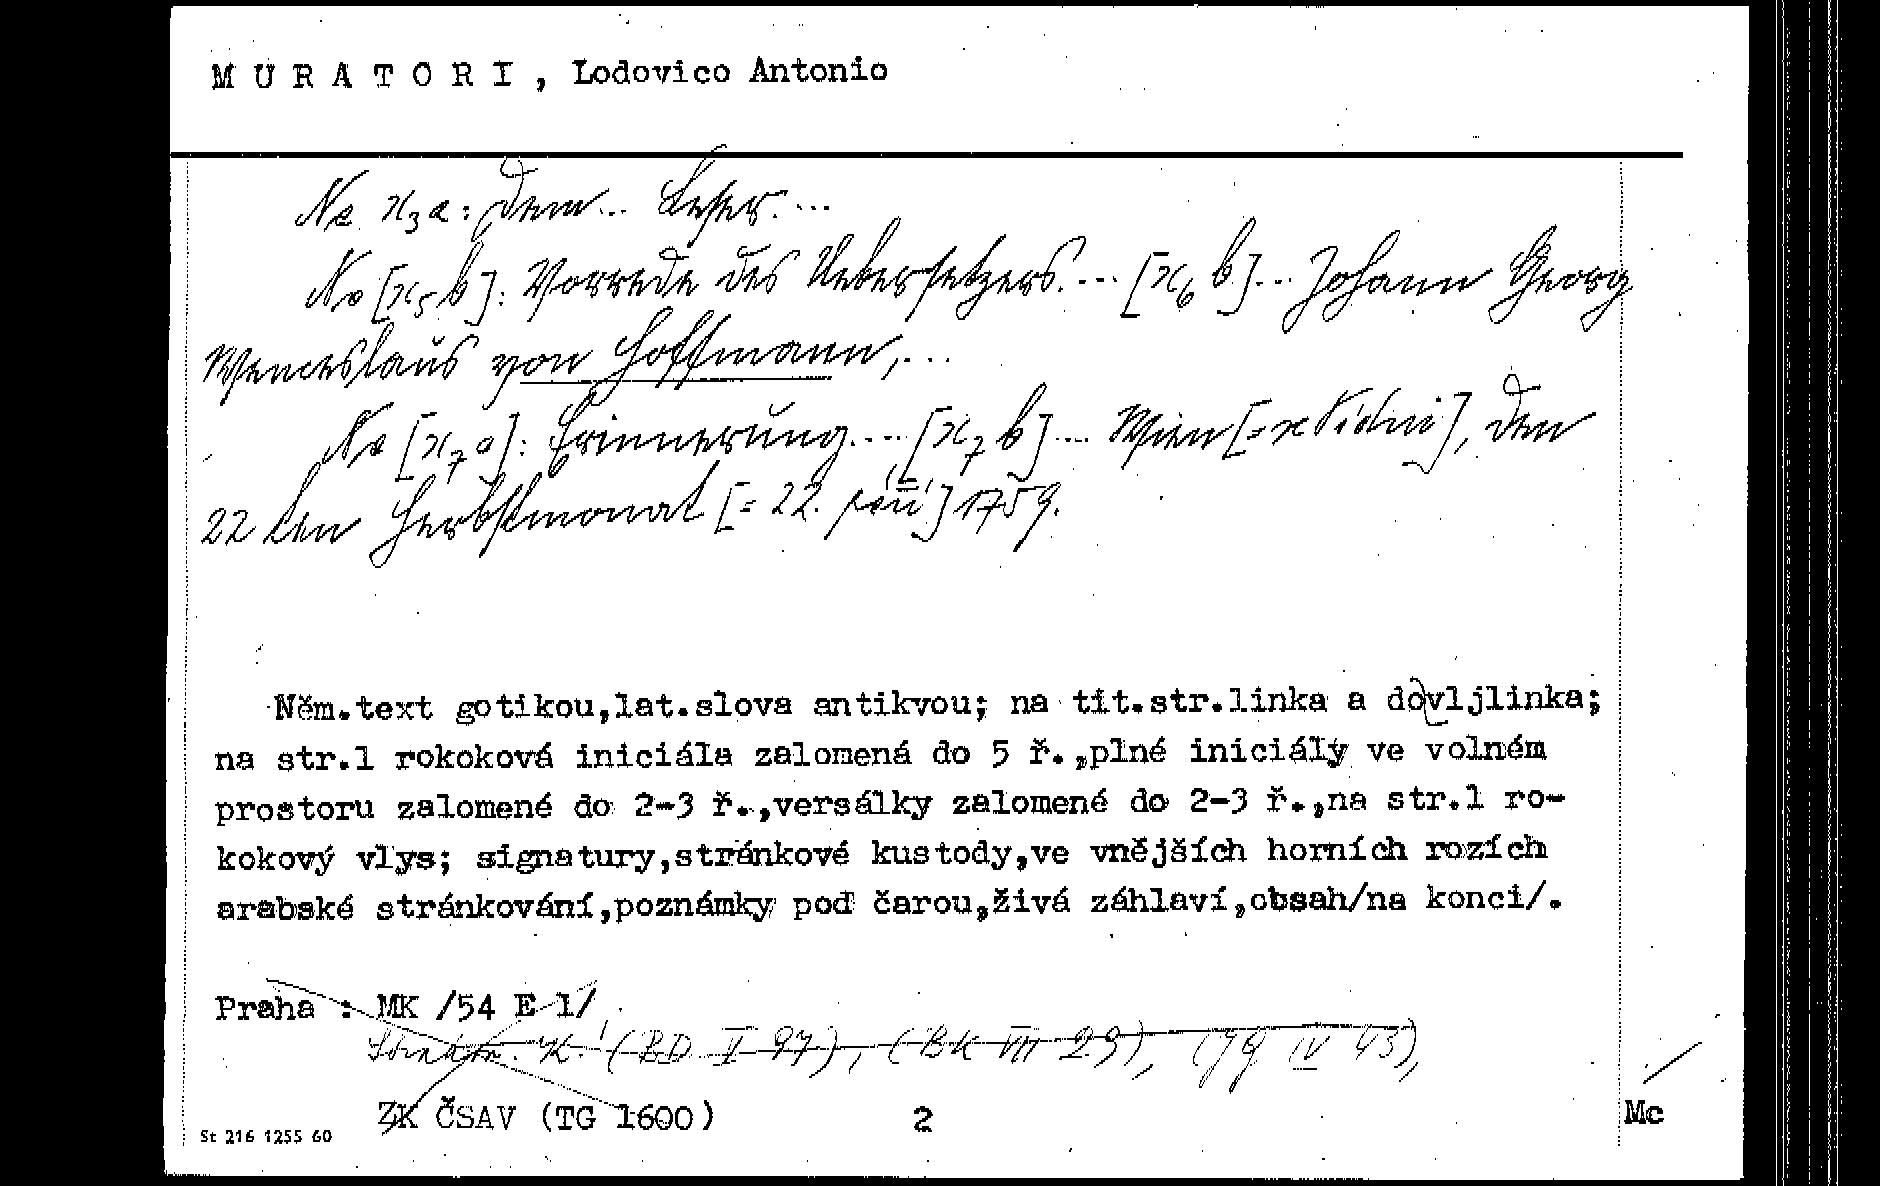 MURATORI, Lodovico Antonio
Na x3a: Dem... Leser....
Na [x5b]: Vorrede des Uebersetzers.... [x6b]... Johann Georg
Wenceslaus von Hoffmann,...
Na [x7a]: Erinnerung.... [x7b]... Wien [= x Vídni], den
22 ten Herbstmonat [= 22. září] 1759.
Něm.text gotikou,lat.slova antikvou; na tit.str.linka a dovljlinka;
na str.1 rokoková iniciála zalomená do 5 ř.,plné iniciály ve volném
prostoru zalomené do 2-3 ř.,versálky zalomené do 2-3 ř.,na str.1 ro-
kokový vlys; signatury,stránkové kustody,ve vnějších horních rozích
arabské stránkování,poznámky pod čarou,živá záhlaví,obsah/na konci/.
Praha : MK /54 E 1/
K. (BD I 97), (BK VII 29), (JG IV 43),
ZK ČSAV (TG 1600)
2
Mc
St 216 1255 60